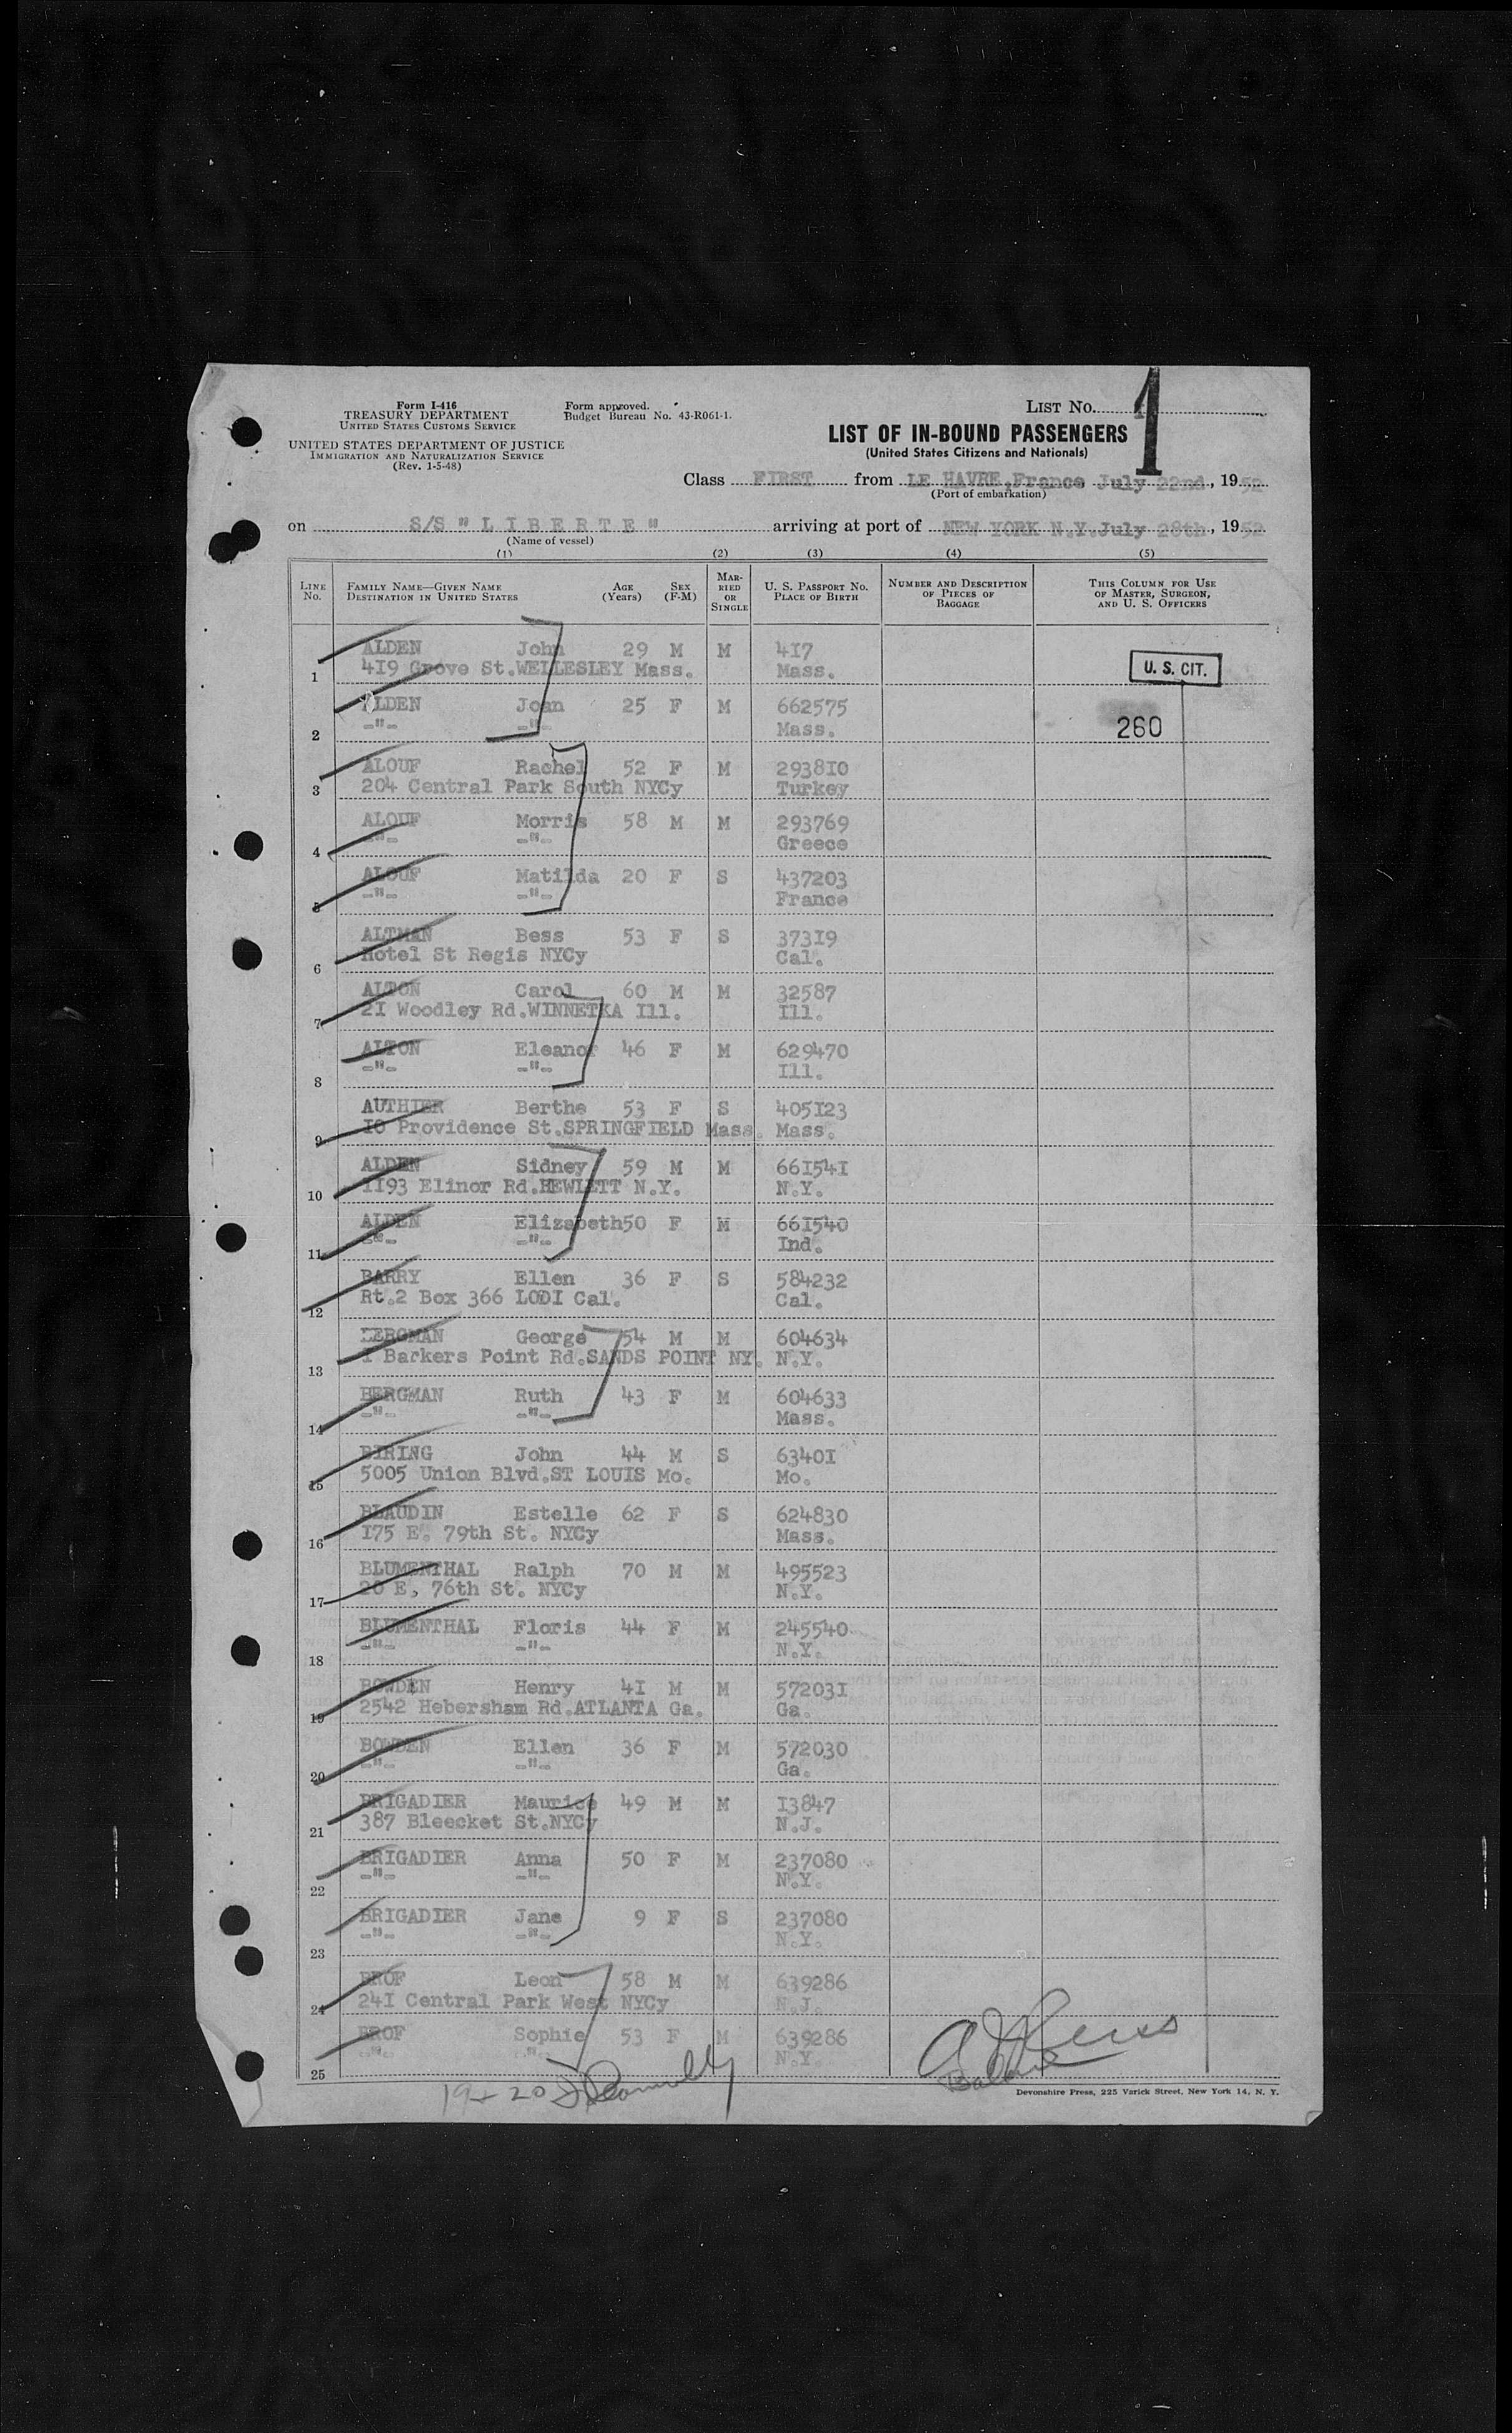 Form I-416
TREASURY DEPARTMENT
UNITED STATES CUSTOMS SERVICE
UNITED STATES DEPARTMENT OF JUSTICE
IMMIGRATION AND NATURALIZATION SERVICE
(Rev. 1-5-48)
Form approved.
Budget Bureau No. 43-R061-1.
LIST No. 1
LIST OF IN-BOUND PASSENGERS
(United States Citizens and Nationals)
Class FIRST from LE HAVRE,France July 22nd, 1952
(Port of embarkation)
on S/S "LIBERTE" arriving at port of NEW YORK N.Y.July 28th, 1952
(Name of vessel)
(1) (2) (3) (4) (5)
LINE No. FAMILY NAME—GIVEN NAME DESTINATION IN UNITED STATES AGE (Years) SEX (F-M) MARRIED OR SINGLE U. S. PASSPORT NO. PLACE OF BIRTH NUMBER AND DESCRIPTION OF PIECES OF BAGGAGE THIS COLUMN FOR USE OF MASTER, SURGEON, AND U. S. OFFICERS
ALDEN John 29 M M 417
1 419 Grove St.WELLESLEY Mass. Mass. U. S. CIT.
ALDEN Joan 25 F M 662575
2 -"- -"- Mass. 260
ALOUF Rachel 52 F M 293810
3 204 Central Park South NYCy Turkey
ALOUF Morris 58 M M 293769
4 -"- -"- Greece
ALOUF Matilda 20 F S 437203
5 -"- -"- France
ALTMAN Bess 53 F S 37319
6 Hotel St Regis NYCy Cal.
ALTON Carol 60 M M 32587
7 21 Woodley Rd.WINNETKA Ill. Ill.
ALTON Eleanor 46 F M 629470
8 -"- -"- Ill.
AUTHIER Berthe 53 F S 405123
9 10 Providence St.SPRINGFIELD Mass. Mass.
ALDEN Sidney 59 M M 661541
10 1193 Elinor Rd.HEWLETT N.Y. N.Y.
ALDEN Elizabeth 50 F M 661540
11 -"- -"- Ind.
BARRY Ellen 36 F S 584232
12 Rt.2 Box 366 LODI Cal. Cal.
BERGMAN George 54 M M 604634
13 1 Barkers Point Rd.SANDS POINT NY. N.Y.
BERGMAN Ruth 43 F M 604633
14 -"- -"- Mass.
BIRING John 44 M S 63401
15 5005 Union Blvd.ST LOUIS Mo. Mo.
BLAUDIN Estelle 62 F S 624830
16 175 E. 79th St. NYCy Mass.
BLUMENTHAL Ralph 70 M M 495523
17 20 E, 76th St. NYCy N.Y.
BLUMENTHAL Floris 44 F M 245540
18 -"- -"- N.Y.
BOWDEN Henry 41 M M 572031
19 2542 Hebersham Rd.ATLANTA Ga. Ga.
BOWDEN Ellen 36 F M 572030
20 -"- -"- Ga.
BRIGADIER Maurice 49 M M 13847
21 387 Bleecket St.NYCy N.J.
BRIGADIER Anna 50 F M 237080
22 -"- -"- N.Y.
BRIGADIER Jane 9 F S 237080
23 -"- -"- N.Y.
BROF Leon 58 M M 639286
24 241 Central Park West NYCy N.J.
BROF Sophie 53 F M 639286
25 -"- -"- N.Y.
19-20
Devonshire Press, 225 Varick Street, New York 14, N. Y.